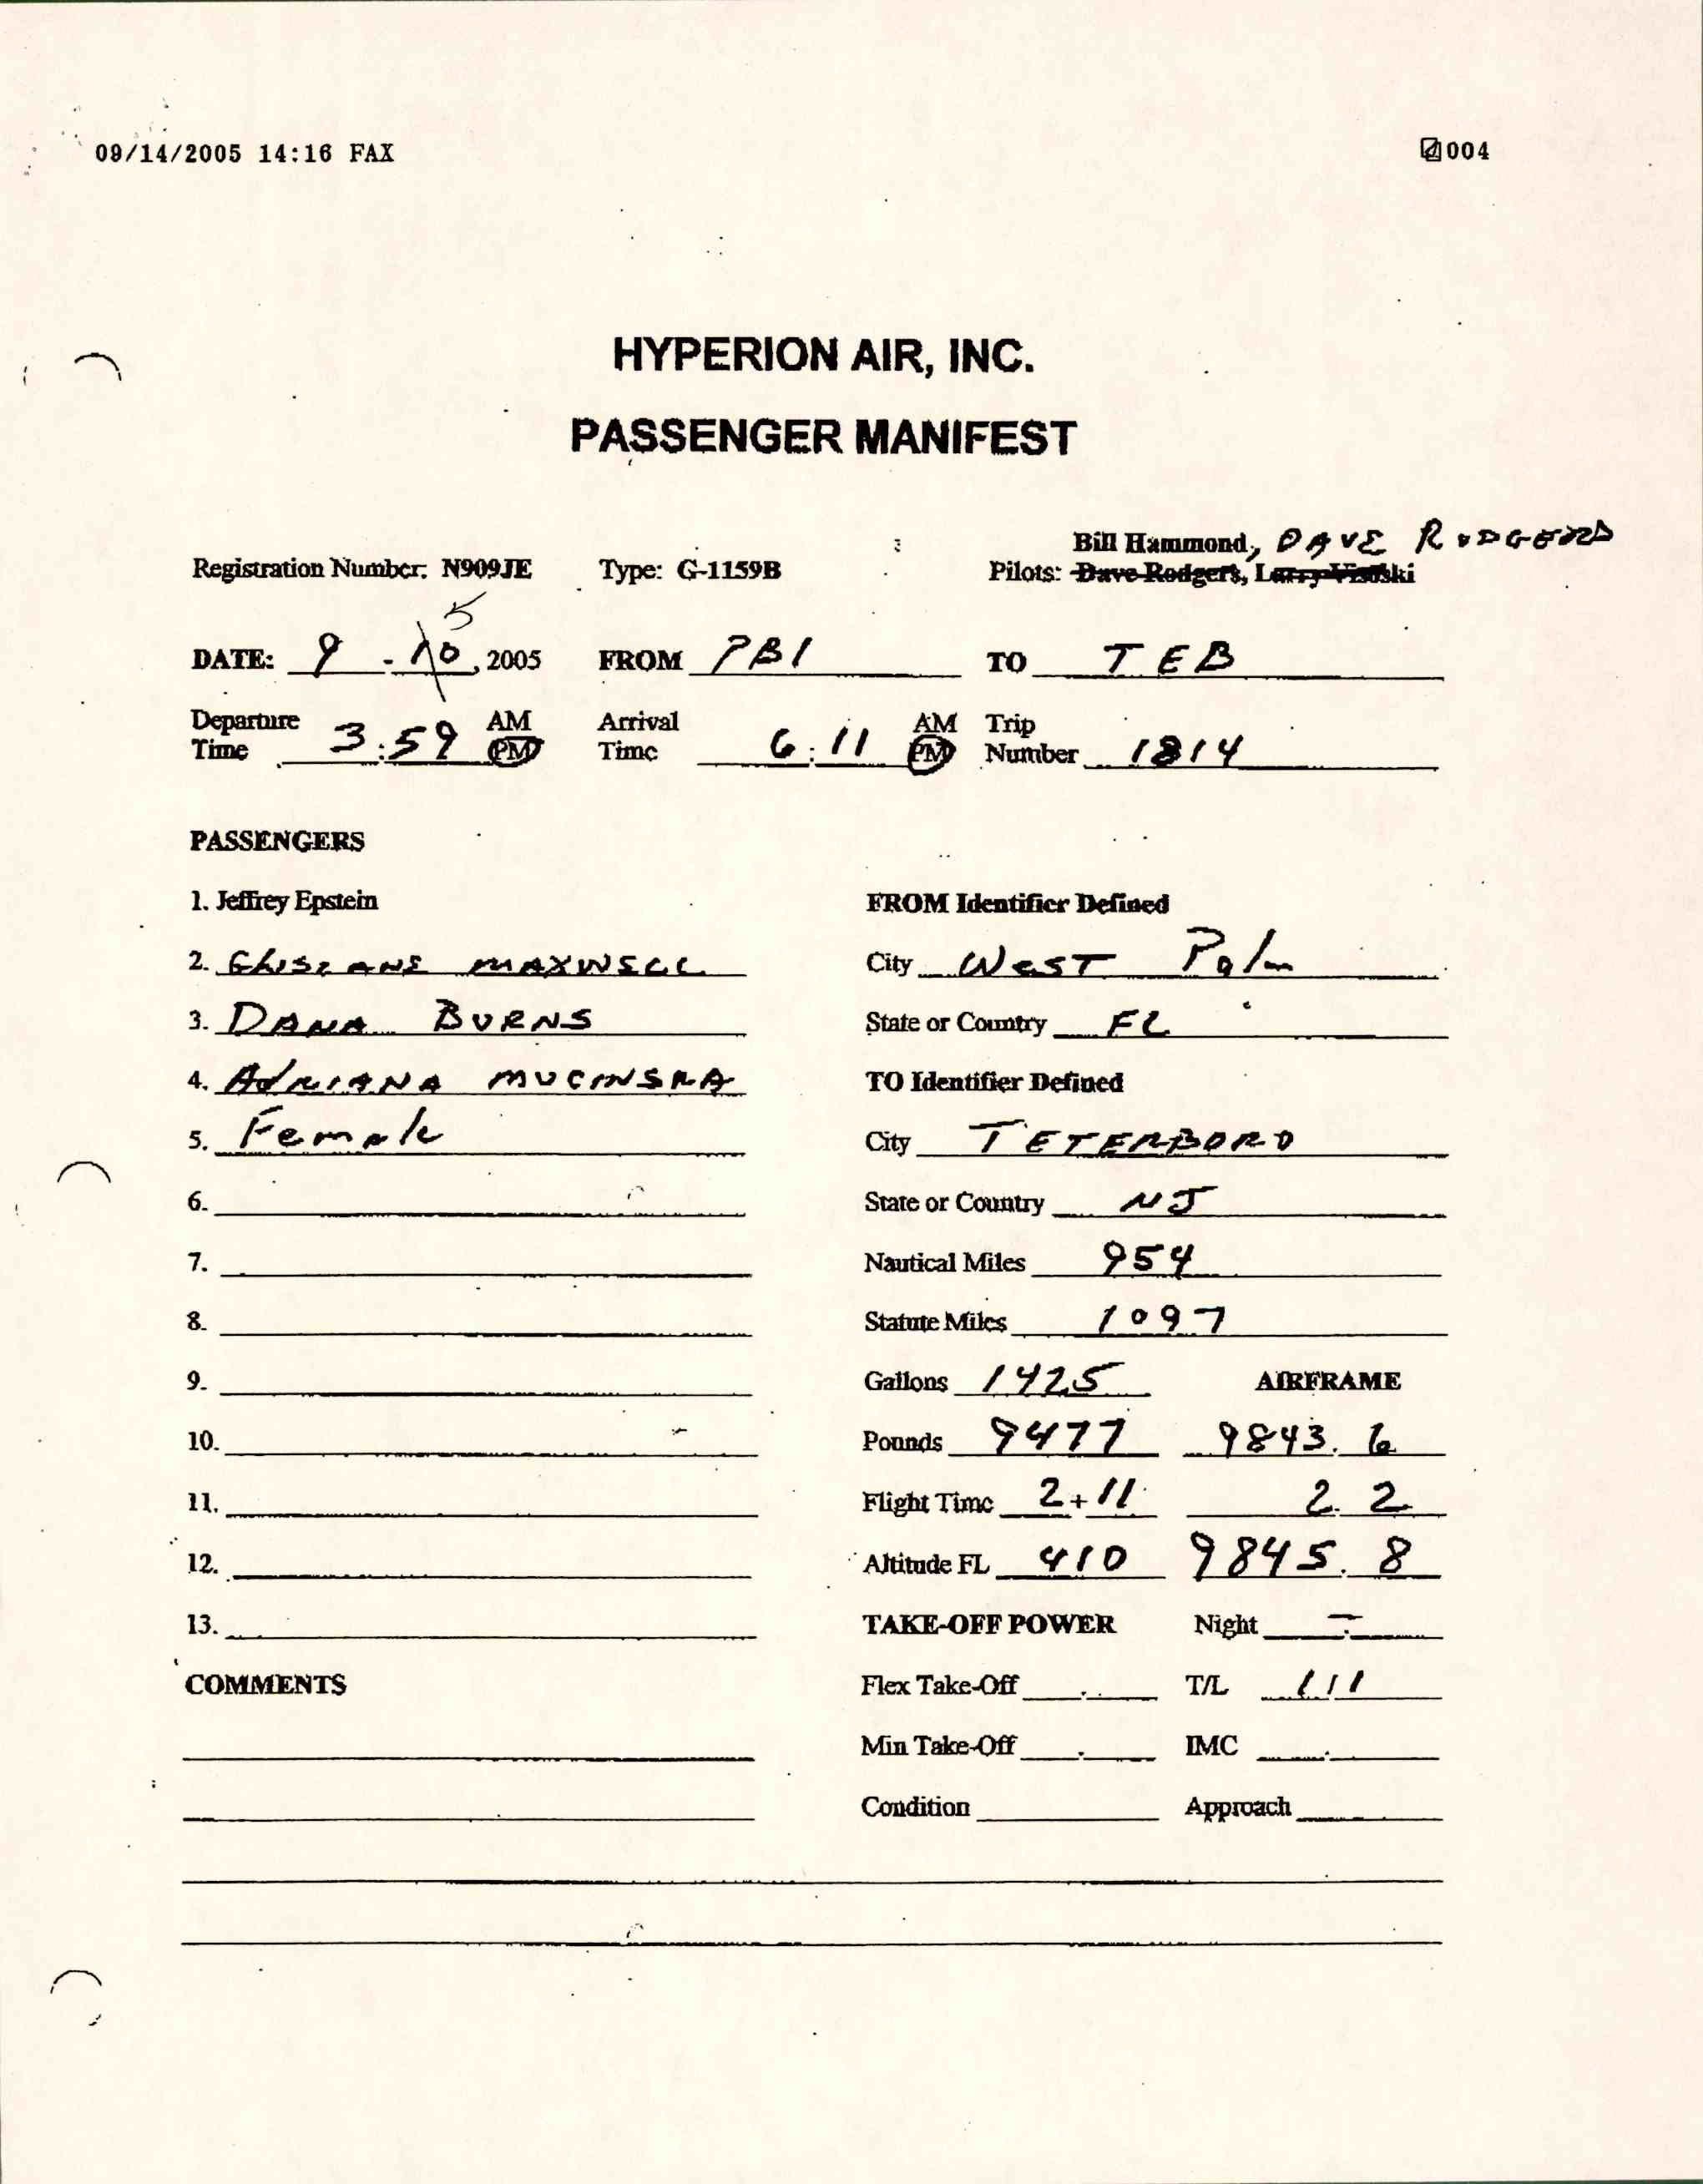 09/14/2005 14:16 FAX
004
HYPERION AIR, INC.
PASSENGER MANIFEST
Bill Hammond, DAVE RODGERS
Registration Number: N909JE Type: G-1159B Pilots: Dave Rodgers, Larry Visoski
5
DATE: 9 - 10, 2005 FROM PBI TO TEB
Departure Time 3:59 AM PM Arrival Time 6:11 AM PM Trip Number 1814
PASSENGERS
1. Jeffrey Epstein FROM Identifier Defined
2. GHISLANE MAXWELL City WEST Palm
3. DANA BURNS State or Country FL
4. ADRIANA MUCINSKA TO Identifier Defined
5. Female City TETERBORO
6. State or Country NJ
7. Nautical Miles 954
8. Statute Miles 1097
9. Gallons 1425 AIRFRAME
10. Pounds 9477 9843.6
11. Flight Time 2+11 2.2
12. Altitude FL 410 9845.8
13. TAKE-OFF POWER Night -
COMMENTS Flex Take-Off T/L 1/1
Min Take-Off IMC
Condition Approach